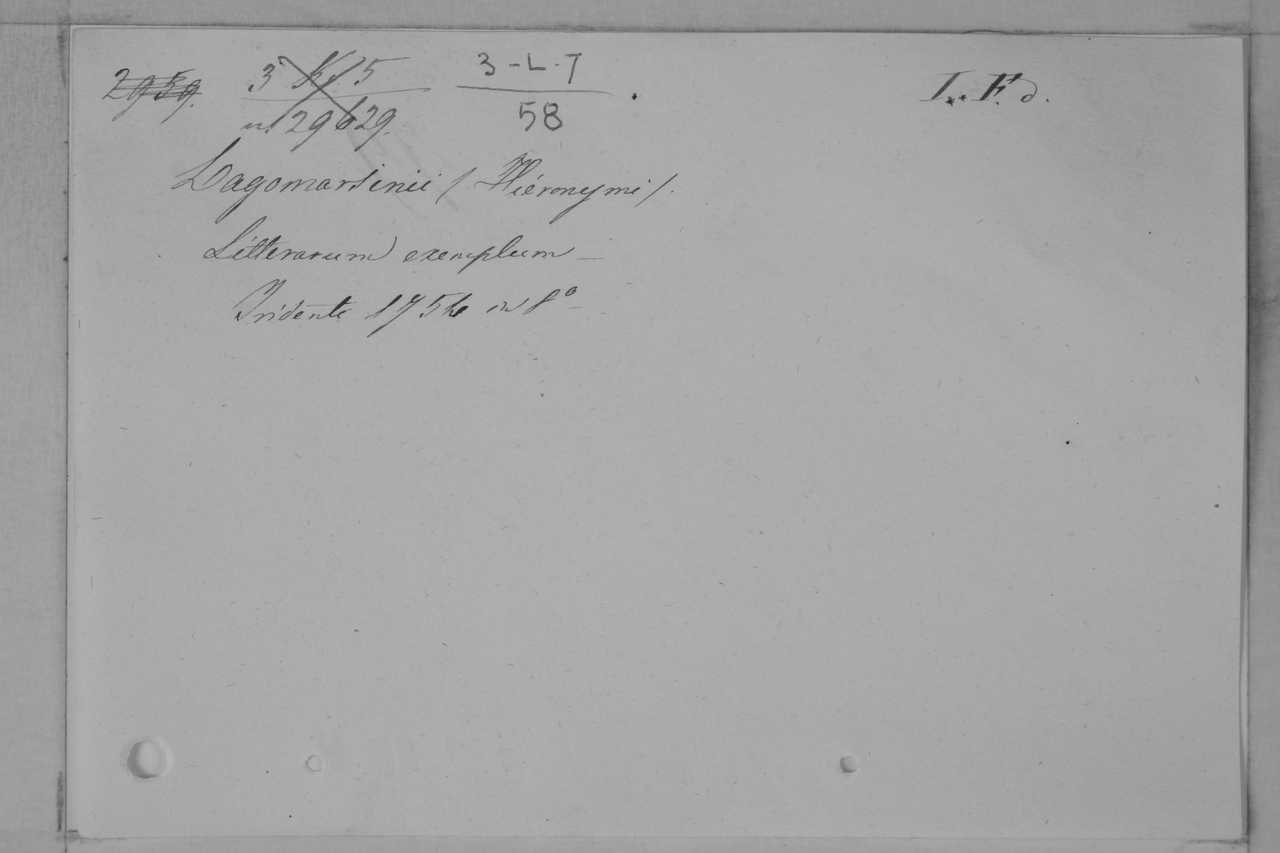 2959. 3 K 5 3-L-7
n. 29629. 58 I.. F. d.
Lagomarsinii (Hieronymi).
Litterarum exemplum –
Tridente 1754 in 8º –